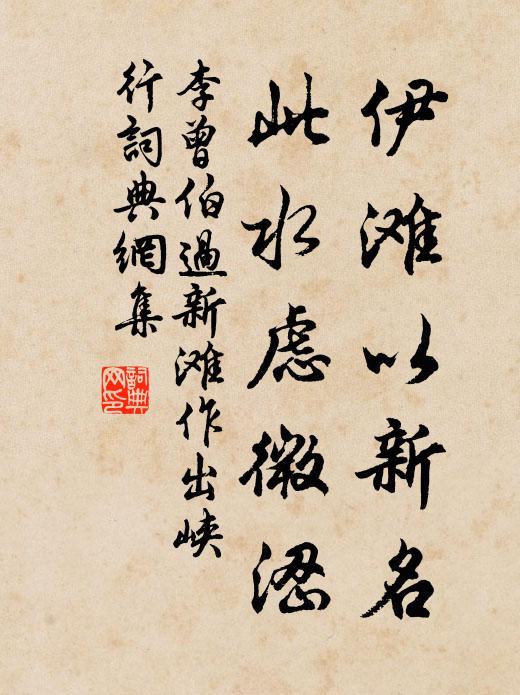 伊滩以新名
此水虑微涊
李曾伯過新滩作出峡
行詞典網集
詞典网印